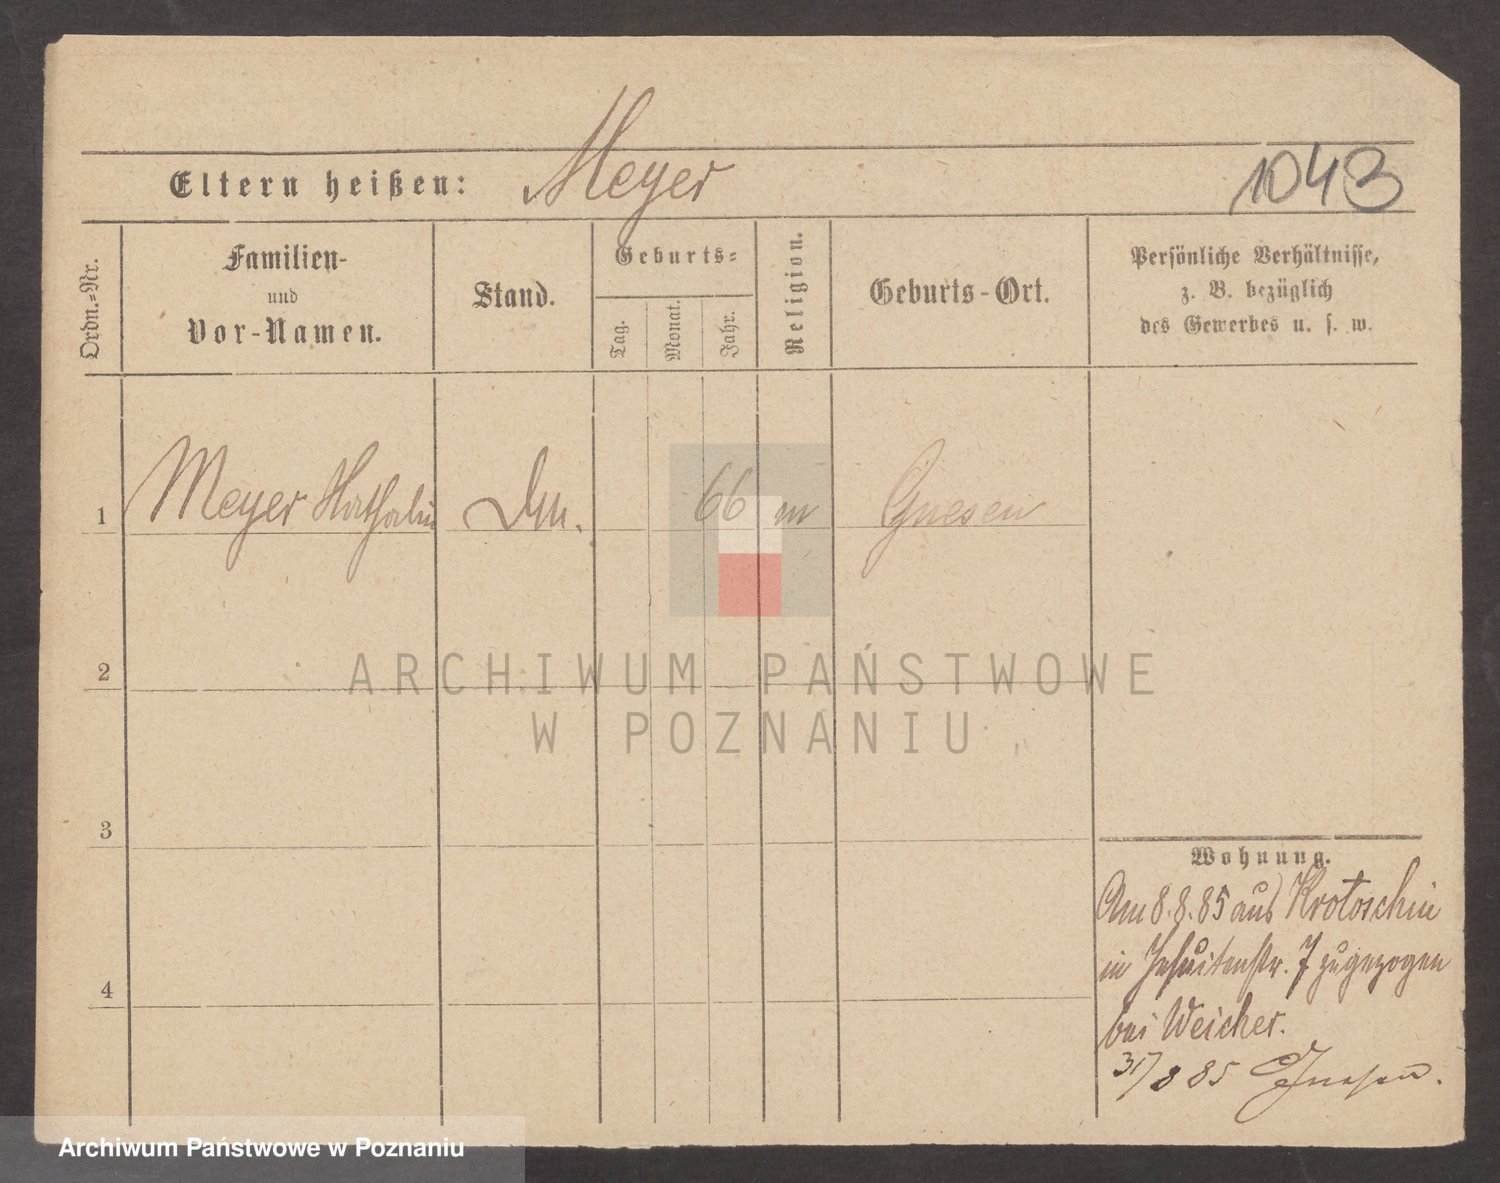 Eltern heißen: Meyer
1043
Ordn.=Nr.
Familien-
und
Vor-Namen.
Stand.
Geburts=
Tag.
Monat.
Jahr.
Religion.
Geburts-Ort.
Persönliche Verhältnisse,
z. B. bezüglich
des Gewerbes u. s. w.
1 Meyer Nathalie 66 m Gnesen
2
ARCHIWUM PAŃSTWOWE
W POZNANIU
3
Wohnung.
Am 8.8.85 aus Krotoschin
in Jesuitenstr. 7 zugezogen
bei Weicher.
4
31/8 85 Gnesen.
Archiwum Państwowe w Poznaniu